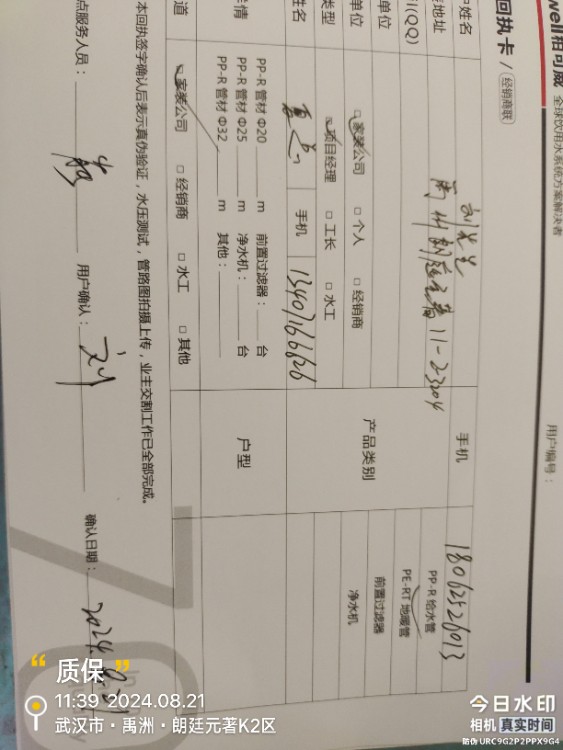 well 柏可威 全球饮用水系统方案解决者
回执卡 / 经销商联
用户编号：
户姓名 刘先生 手机 18062526013
装地址 禹州朗廷元著11-2-3204
(QQ)
单位
单位 □ 家装公司 □ 个人 □ 经销商 产品类别 PP-R 给水管 PE-RT 地暖管 前置过滤器 净水机
类型 □ 项目经理 □ 工长 □ 水工
姓名 手机 13407166626
详情
PP-R 管材 Φ20 m 前置过滤器： 台
PP-R 管材 Φ25 m 净水机： 台
PP-R 管材 Φ32 m 其他：
户型
道 □ 家装公司 □ 经销商 □ 水工 □ 其他
本回执签字确认后表示真伪验证，水压测试，管路图拍摄上传，业主交割工作已全部完成。
点服务人员： 用户确认：刘 确认日期：2024.8.21
“质保”
11:39 2024.08.21
武汉市·禹洲·朗廷元著K2区
今日水印
相机 真实时间
防伪 URC9G2P2PPX9G4